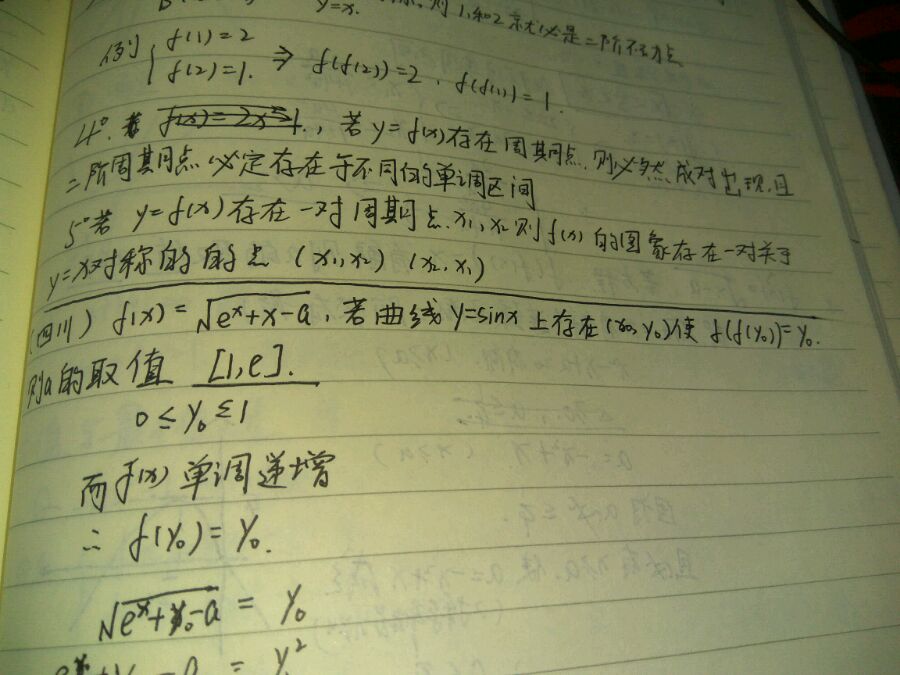 y=x. 则1和2就必是二阶不动点
例 { f(1)=2
f(2)=1. ⇒ f(f(2))=2, f(f(1))=1.
4° 若 f(x)=2x²-1., 若y=f(x)存在周期点,则必然成对出现,且
二阶周期点必定存在于不同的单调区间
5°若 y=f(x)存在一对周期点.x₁,x₂则f(x)的图象存在一对关于
y=x对称的的点 (x₁,x₂) (x₂,x₁)
(四川) f(x)=√(eˣ+x-a), 若曲线y=sinx上存在(x₀,y₀)使 f(f(y₀))=y₀.
则a的取值 [1,e].
0≤y₀≤1
而f(x)单调递增
∴ f(y₀)=y₀.
√(eˣ+y₀-a) = y₀